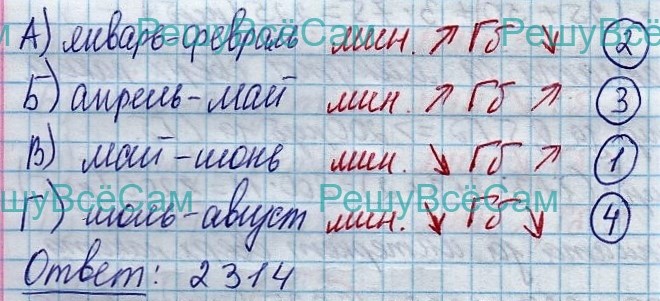 А) январь-февраль мин. ↗ Гб ↘ ②
Б) апрель-май мин. ↗ Гб ↗ ③
В) май-июнь мин. ↘ Гб ↗ ①
Г) июль-август мин. ↘ Гб ↘ ④
Ответ: 2314
РешуВсёСам
РешуВсёСам
шуВсёСам
РешуВсёСам